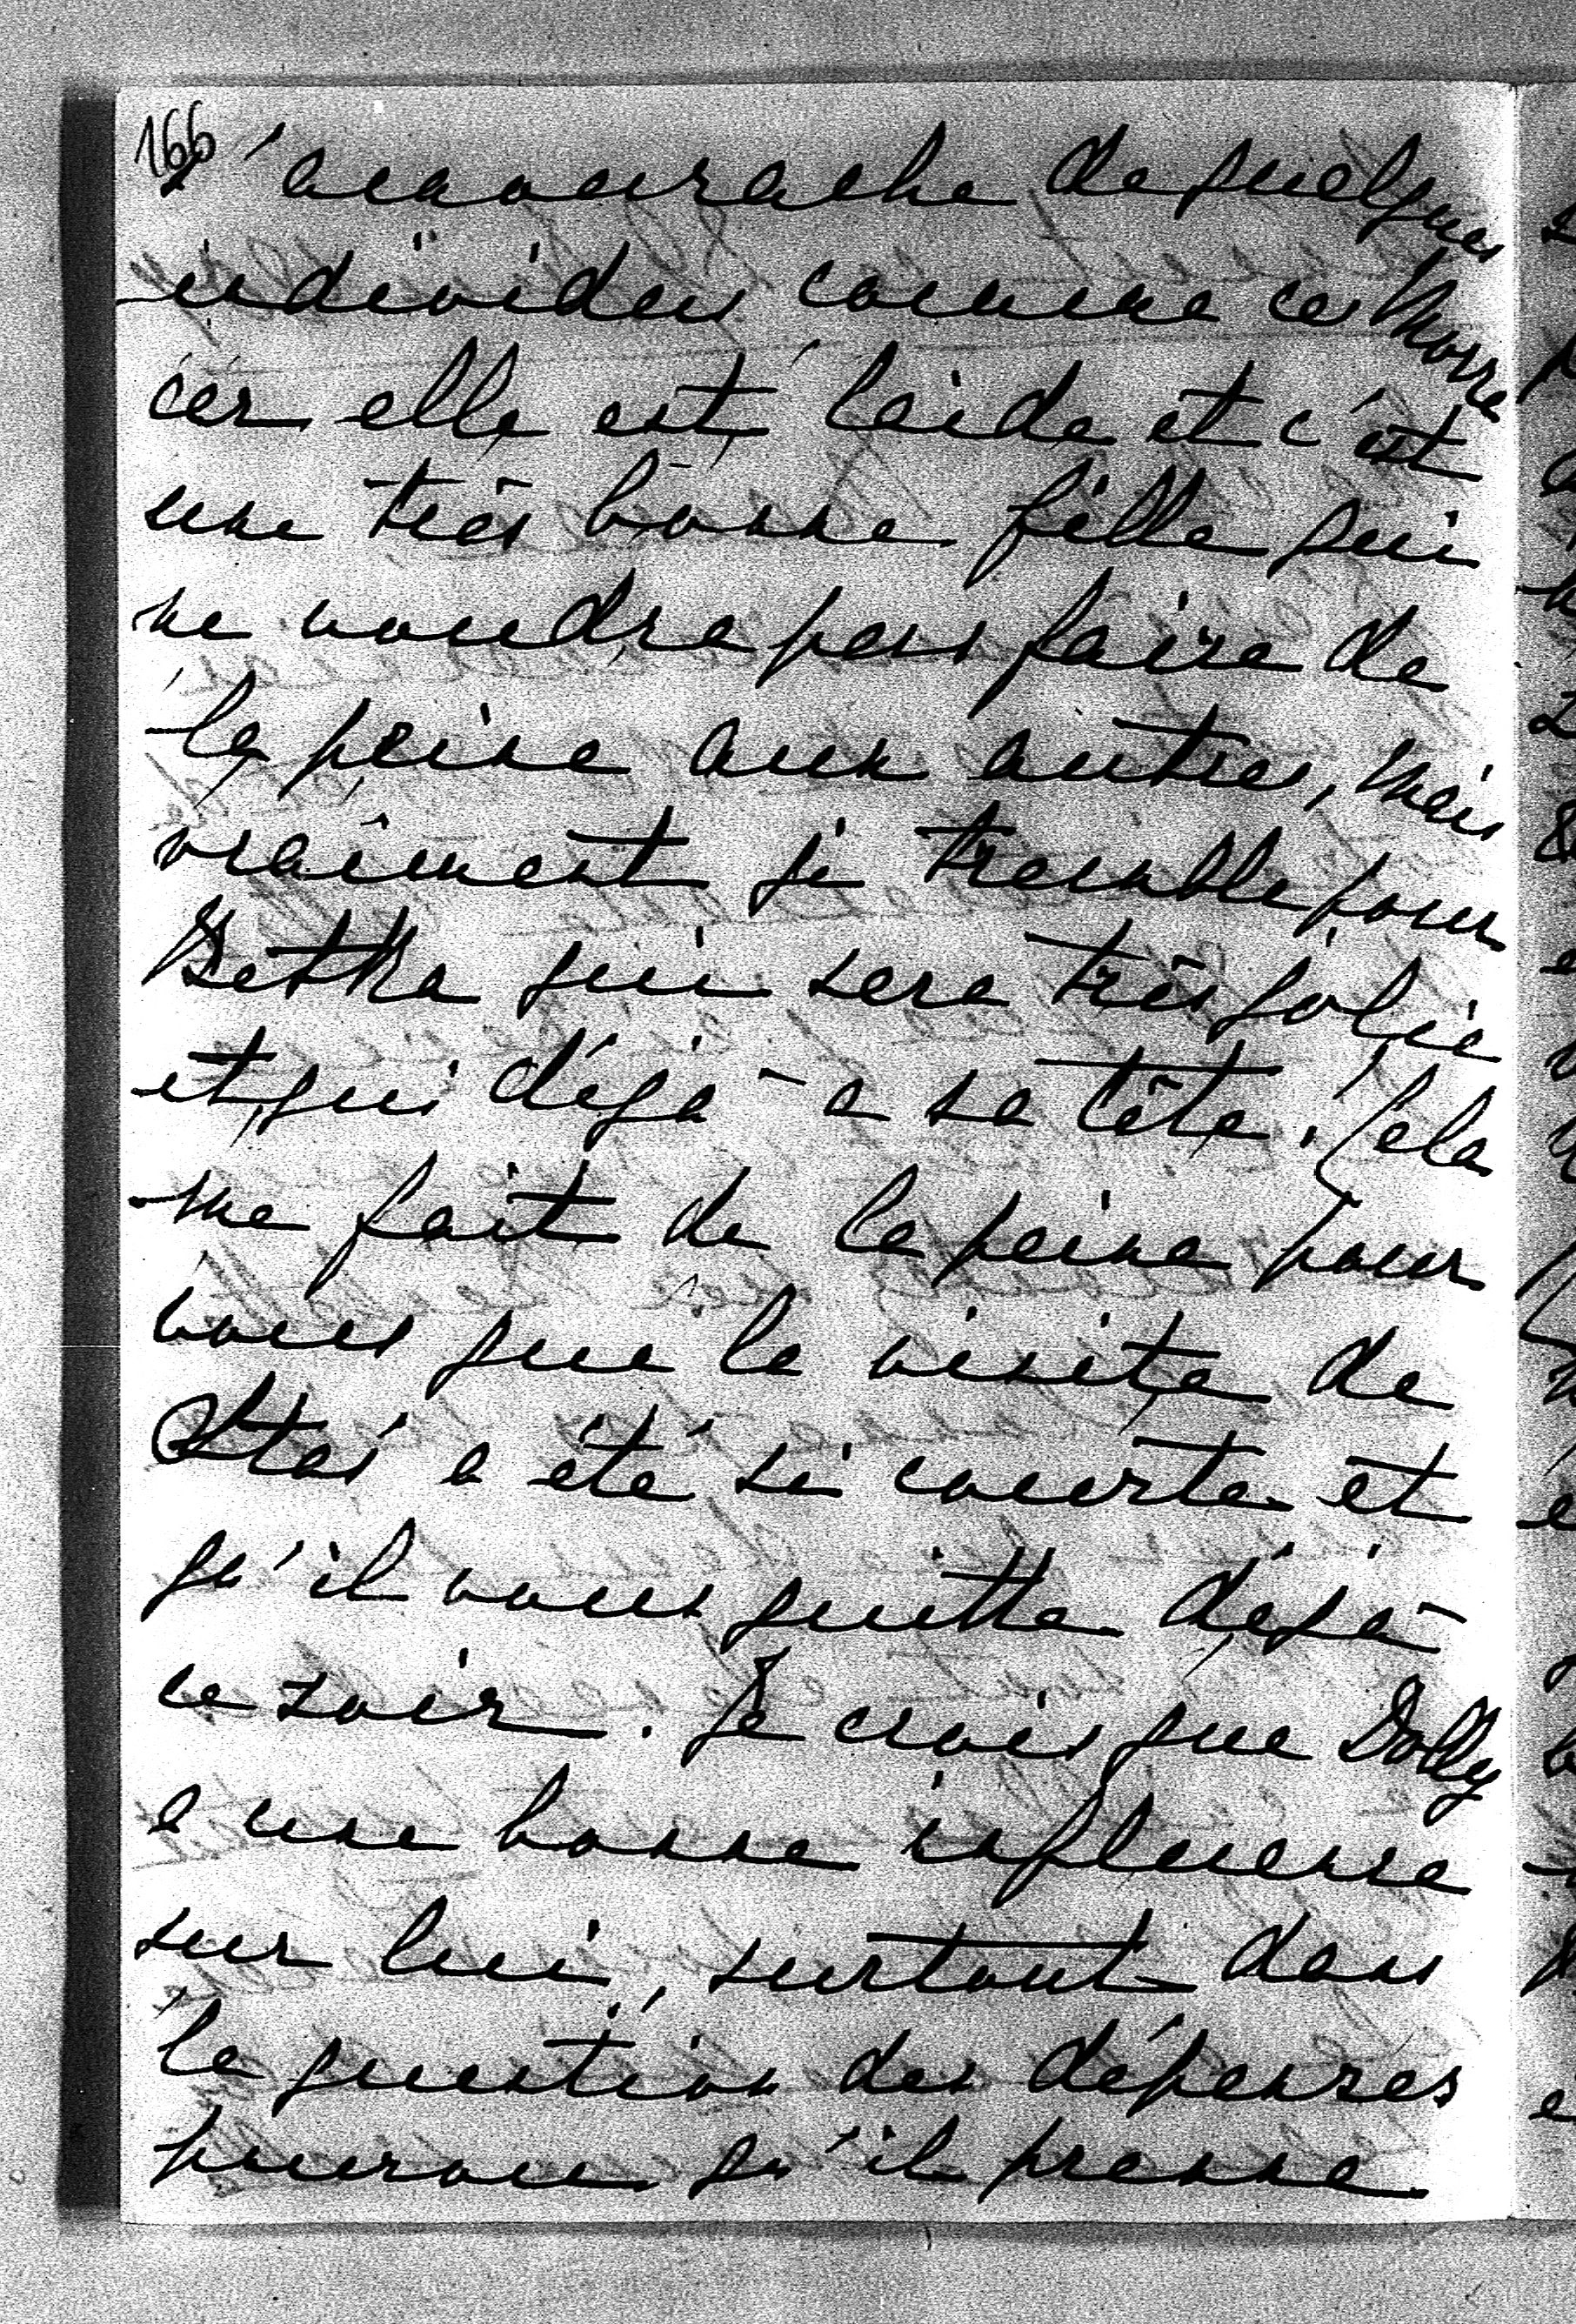 166
s'amourache de quelques
individus comme ces Morre
car elle est laide et c'est
une très bonne fille qui
ne voudra pas faire de
la peine aux autres, mais
vraiment je tremble pour
Betka qui sera très jolie
et qui déjà a sa tête. Cela
me fait de la peine pour
vous que la visite de
Stas a été si courte et
qu'il vous quitte déjà
ce soir. Je crois que Dolly
a une bonne influence
sur lui, surtout dans
la question des dépenses
pourvu qu'il prenne